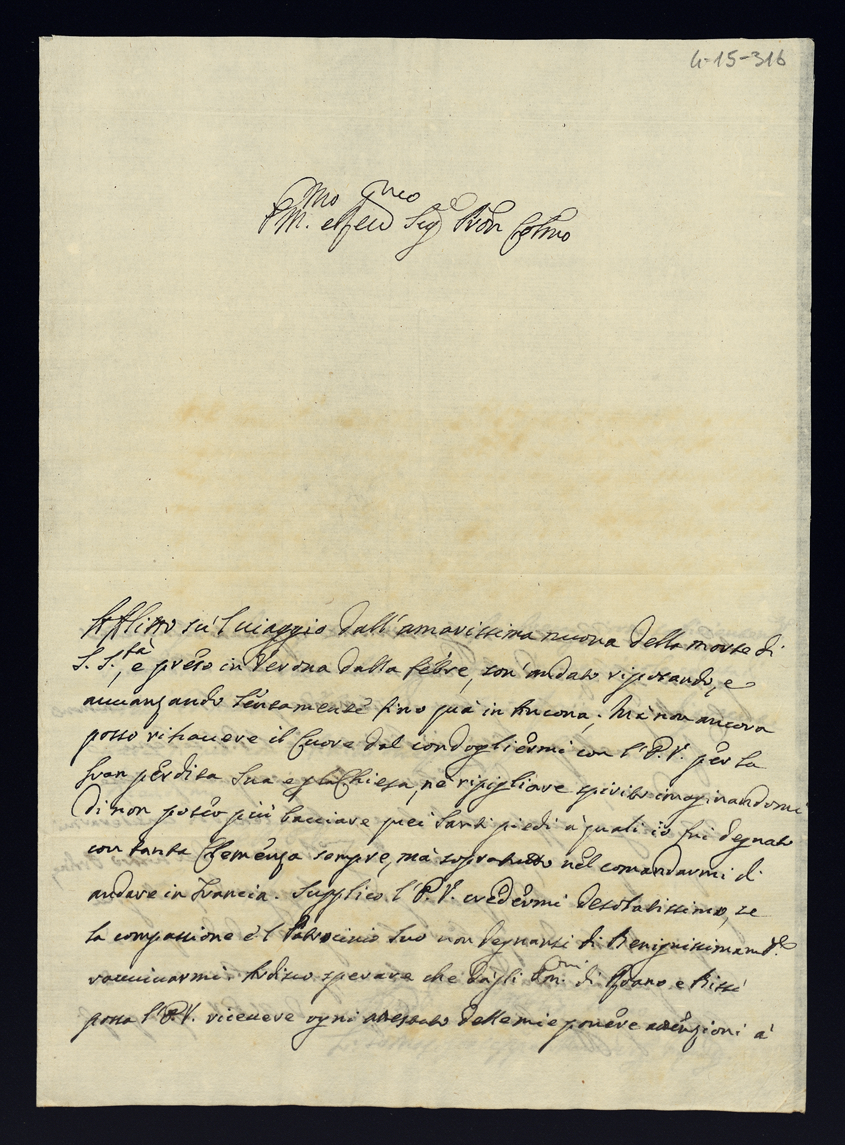 4-15-316
Em.mo e Rev.mo Sig.r Pron Col.mo
Afflitto su'l viaggio dall'amarissima nuova della morte di
S. S.tà, e preso in Verona dalla febre, son' andato riposando, e
avvanzando lentamente fino quà in Ancona; Mà non ancora
posso ritraere il Cuore dal condogliermi con l'P.V. per la
gran perdita Sua e della Chiesa, ne ripigliare spirito imaginandomi
di non poter più bacciare quei Santi piedi à quali io fui degnato
con tanta Clemenza sempre, mà sopratutto nel comandarmi di
andare in Francia. Supplico l'P.V. credermi desolatissimo, se
la compassione e'l Patrocinio Suo non degnarsi di Benignissimam.te
ravvivarmi. Ardisco sperare che dagli Em.mi di e Bissi
possa l'P.V. ricevere ogni attestato delle mie povere attenzioni à